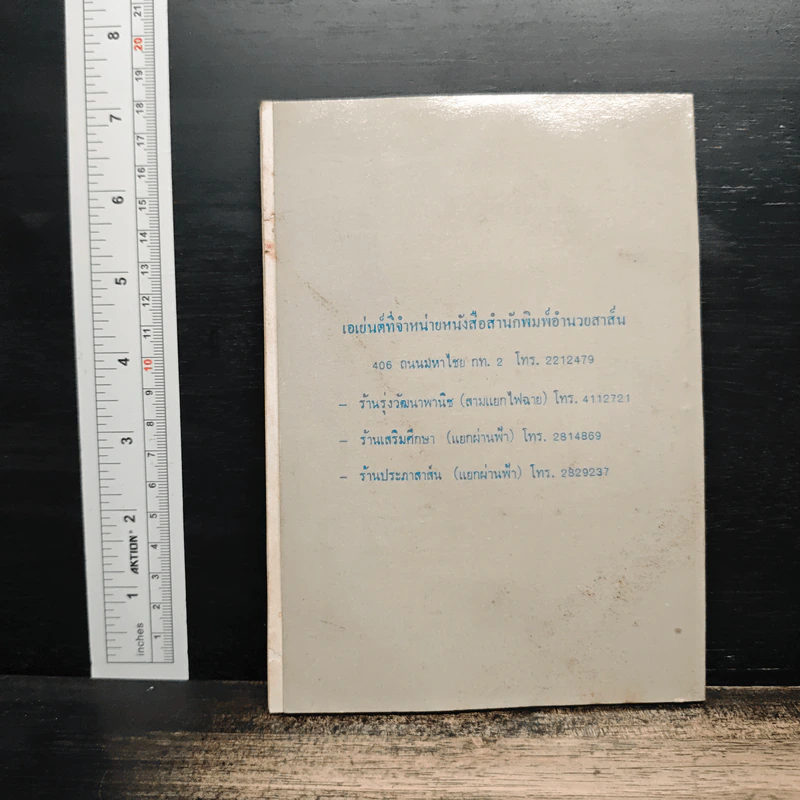 เอเย่นต์ที่จำหน่ายหนังสือสำนักพิมพ์อำนวยสาส์น
406 ถนนมหาไชย กท. 2 โทร. 2212479
– ร้านรุ่งวัฒนาพานิช (สามแยกไฟฉาย) โทร. 4112721
– ร้านเสริมศึกษา (แยกผ่านฟ้า) โทร. 2814869
– ร้านประภาสาส์น (แยกผ่านฟ้า) โทร. 2829237
8
7
6
5
4
3
2
1
inches
AKTION
21
20
19
18
17
16
15
14
13
12
11
10
9
8
7
6
5
4
3
2
1